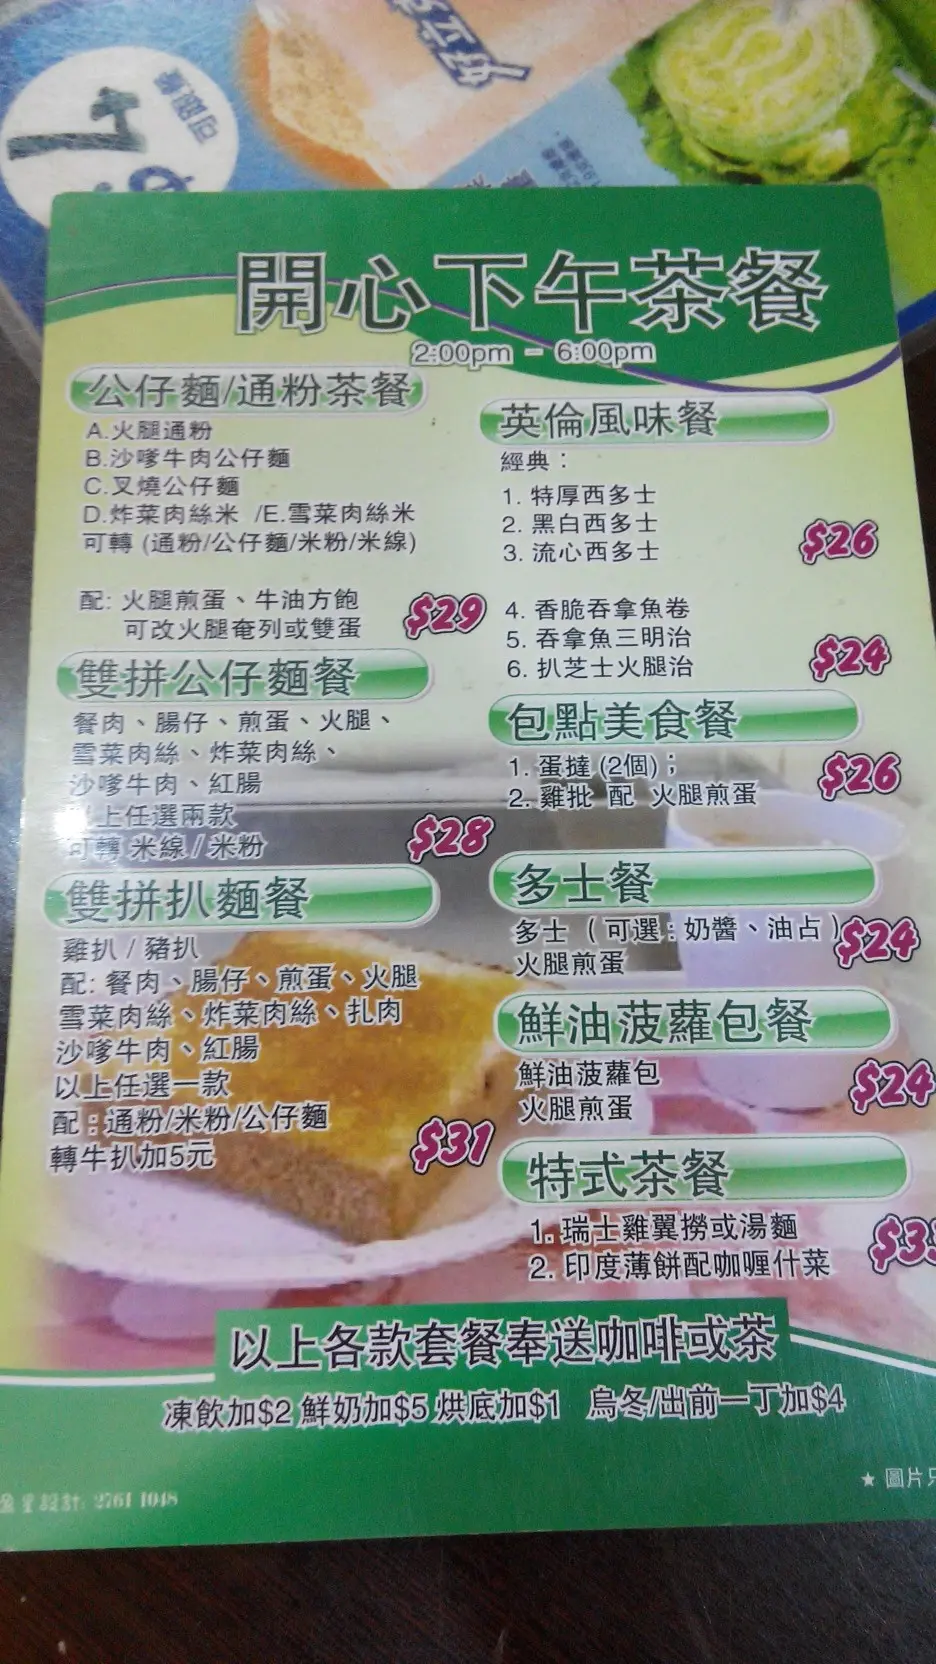 開心下午茶餐
2:00pm - 6:00pm
公仔麵/通粉茶餐
A.火腿通粉
B.沙嗲牛肉公仔麵
C.叉燒公仔麵
D.炸菜肉絲米 /E.雪菜肉絲米
可轉 (通粉/公仔麵/米粉/米線)
配: 火腿煎蛋、牛油方飽
可改火腿奄列或雙蛋
$29
雙拼公仔麵餐
餐肉、腸仔、煎蛋、火腿、
雪菜肉絲、炸菜肉絲、
沙嗲牛肉、紅腸
以上任選兩款
可轉 米線/米粉
$28
雙拼扒麵餐
雞扒 / 豬扒
配: 餐肉、腸仔、煎蛋、火腿
雪菜肉絲、炸菜肉絲、扎肉
沙嗲牛肉、紅腸
以上任選一款
配:通粉/米粉/公仔麵
轉牛扒加5元
$31
英倫風味餐
經典：
1. 特厚西多士
2. 黑白西多士
3. 流心西多士
$26
4. 香脆吞拿魚卷
5. 吞拿魚三明治
6. 扒芝士火腿治
$24
包點美食餐
1. 蛋撻 (2個)；
2. 雞批 配 火腿煎蛋
$26
多士餐
多士 (可選:奶醬、油占)
火腿煎蛋
$24
鮮油菠蘿包餐
鮮油菠蘿包
火腿煎蛋
$24
特式茶餐
1. 瑞士雞翼撈或湯麵
2. 印度薄餅配咖喱什菜
以上各款套餐奉送咖啡或茶
凍飲加$2 鮮奶加$5 烘底加$1 烏冬/出前一丁加$4
★ 圖片只
星設計: 2761 1048